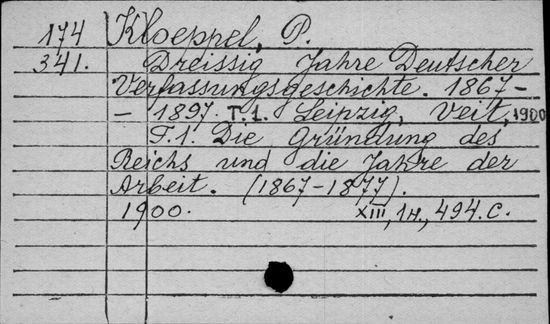 174 Kloeppel, P.
341. Dreissig Jahre Deutscher
Verfassungsgeschichte. 1867-
- 1897. T.1. Leipzig, Veit, 1900
T.1. Die Gründung des
Reichs und die Jahre der
Arbeit. (1867-1877).
1900. XIII, 1н., 494.c.